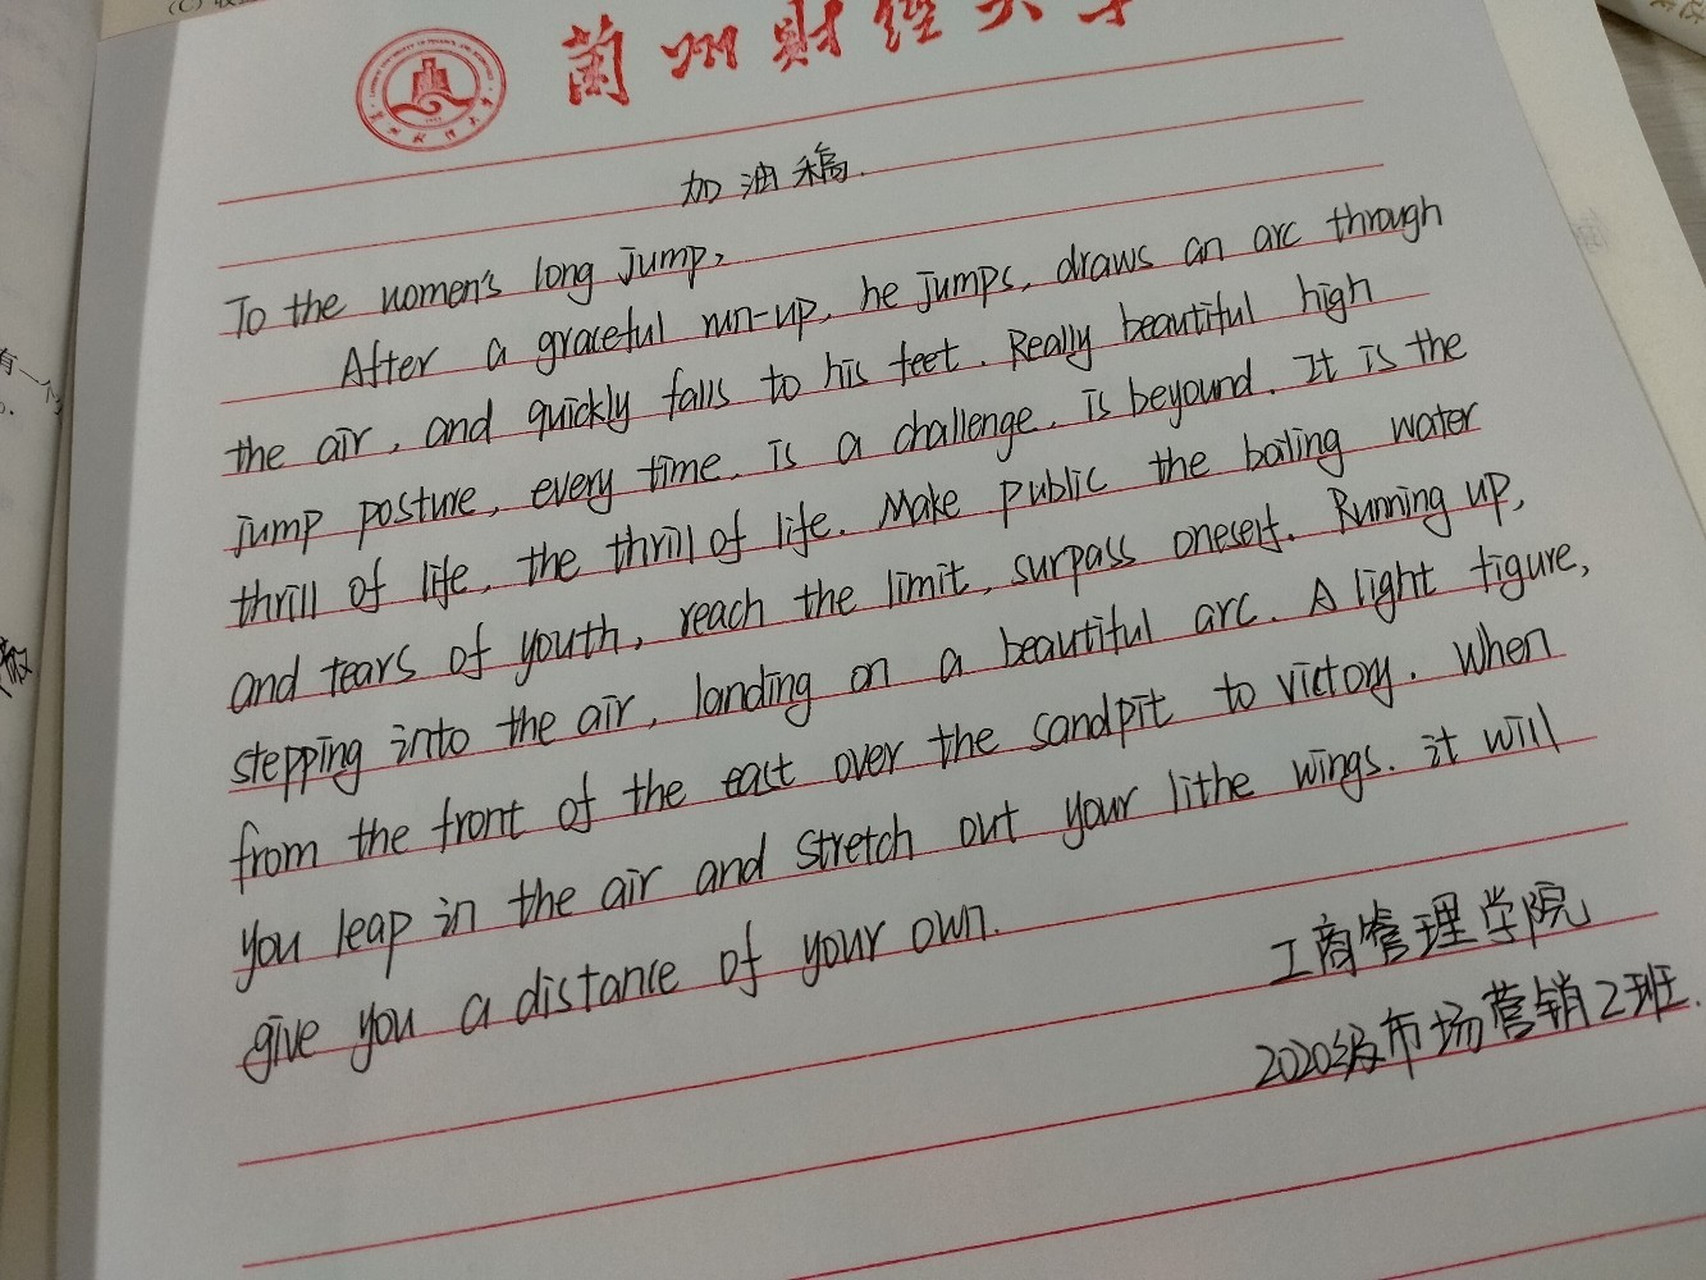 兰州财经大学
加油稿.
To the women's long jump,
After a graceful run-up, he jumps, draws an arc through
the air, and quickly falls to his feet. Really beautiful high
jump posture, every time, is a challenge, is beyound. It is the
thrill of life, the thrill of life. Make public the boiling water
and tears of youth, reach the limit, surpass oneself. Running up,
stepping into the air, landing on a beautiful arc. A light figure,
from the front of the east over the sandpit to victory. When
you leap in the air and stretch out your lithe wings. it will
give you a distance of your own.
工商管理学院
2020级市场营销2班.
有一个